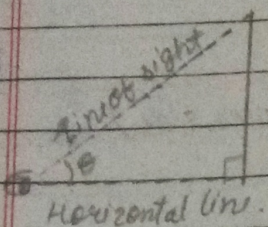 Line of sight
θ
Horizontal line.